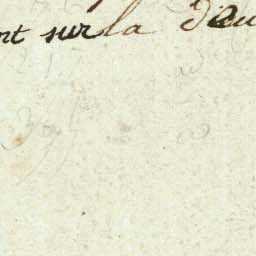 nt sur la deu